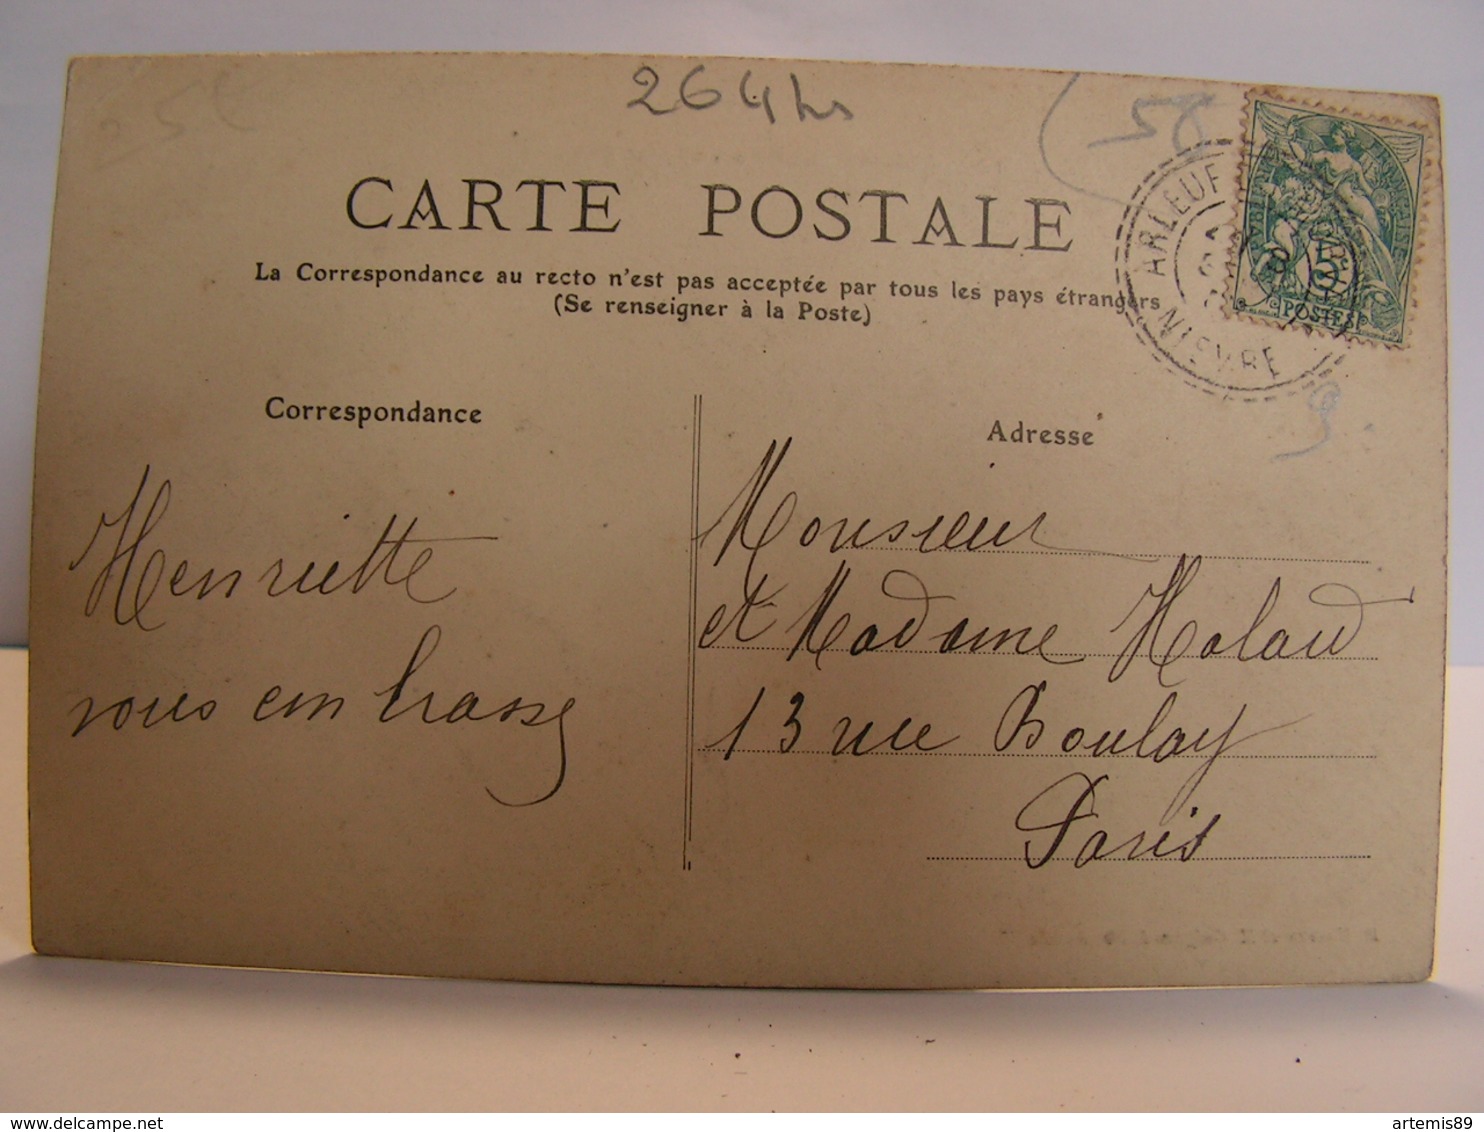 264 hs
(58
CARTE POSTALE
La Correspondance au recto n'est pas acceptée par tous les pays étrangers
(Se renseigner à la Poste)
ARLEUF
NIEVRE
5
POSTES
Correspondance
Adresse
Henriette
vous embrasse
Monsieur
et Madame
13 rue Boulay
Paris
artemis89